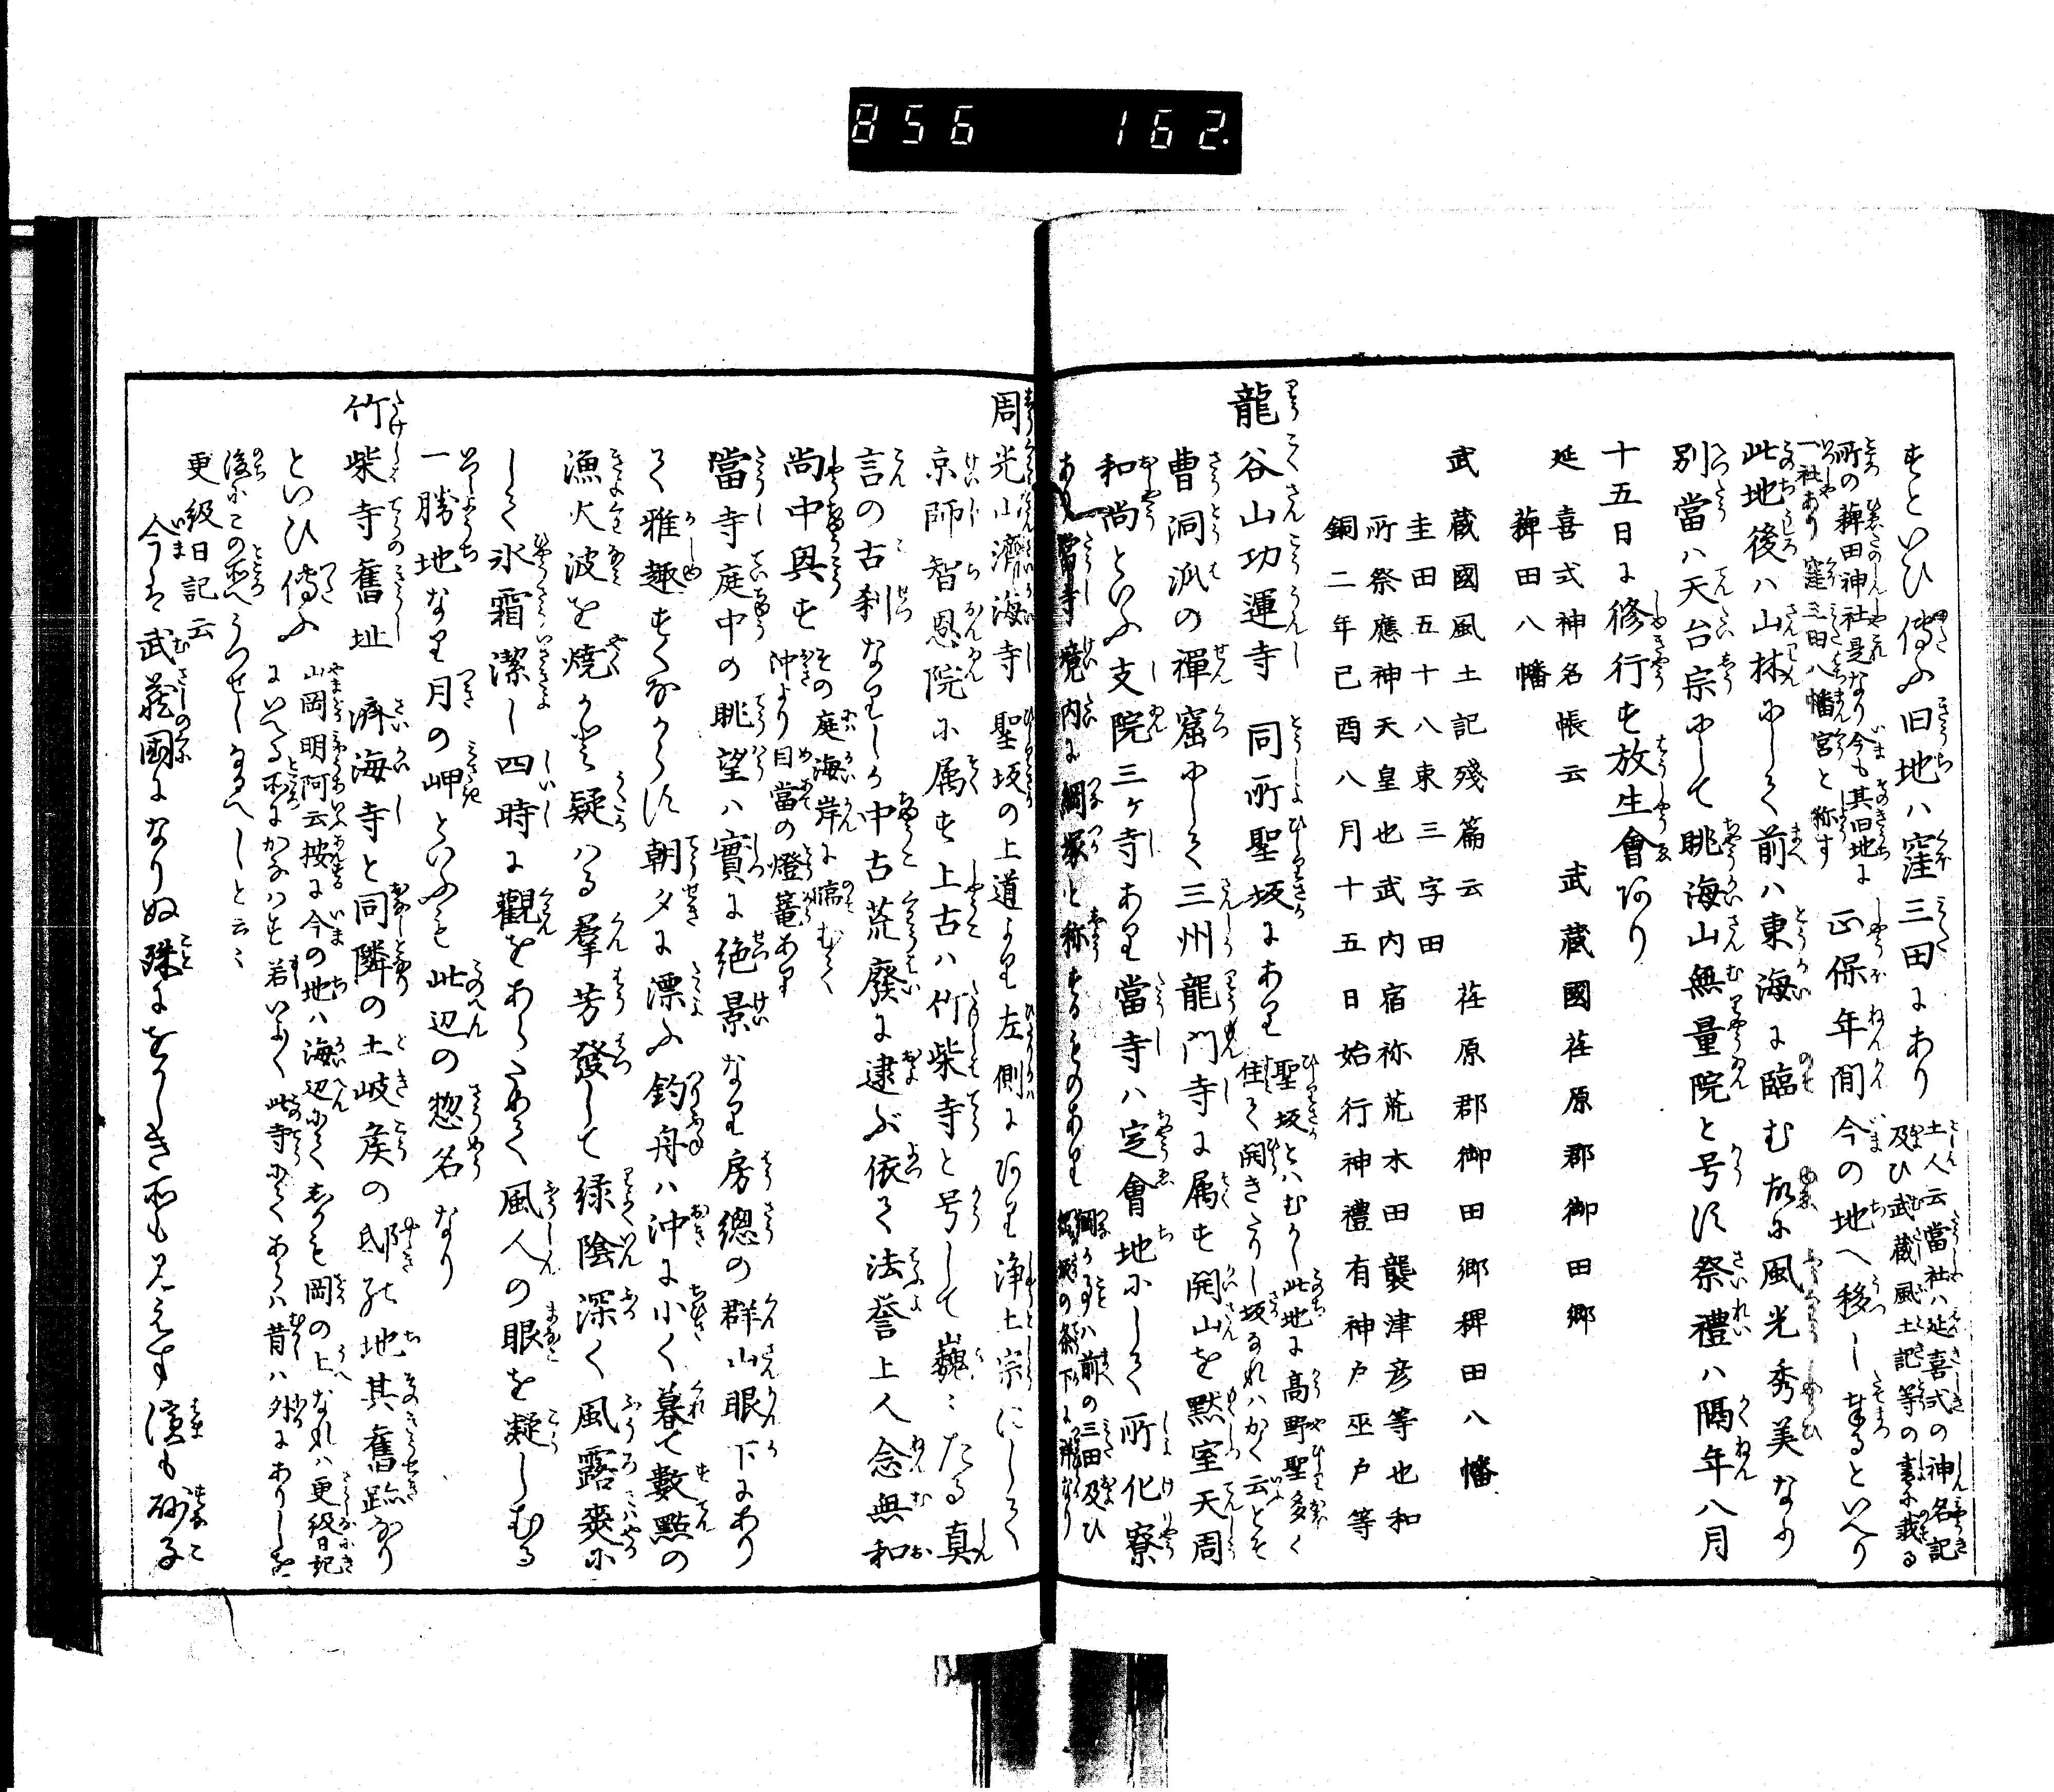 856 162.
すといひ傳ふ旧地ハ窪三田にあり
土人云當社ハ延喜式の神名記
及ひ武蔵風土記等の書に載る
所の薭田神社是なり今も其旧地に
一社あり窪三田八幡宮と称す
正保年間今の地へ移し奉るといへり
此地後ハ山林にして前ハ東海に臨む故に風光秀美なり
別當ハ天台宗にして眺海山無量院と号す祭禮ハ隔年八月
十五日に修行す放生會あり
延喜式神名帳云 武蔵國荏原郡御田郷
薭田八幡
武蔵國風土記殘篇云 荏原郡御田郷稗田八幡
圭田五十八束三字田
所祭應神天皇也武内宿祢荒木田襲津彦等也和
銅二年已酉八月十五日始行神禮有神戸巫戸等
龍谷山功運寺 同所聖坂にあり
聖坂とハむかし此地に高野聖多く
住て開きたりし坂なれハかく云とそ
曹洞派の禅窟にして三州龍門寺に属す開山を黙室天周
和尚といふ支院三ケ寺あり當寺ハ定會地にして所化寮
あり
當寺境内に綱塚と称するものあり
綱か事ハ前の三田及ひ
周光山濟海寺 聖坂の上道より左側にあり浄土宗にして
京師智恩院に属す上古ハ竹柴寺と号して巍〻たる真
言の古刹なりしか中古荒廢に逮ぶ依て法誉上人念無和
尚中興す
その庭海岸に臨むて
沖より目當の燈篭あり
當寺庭中の眺望ハ實に絶景なり房總の群山眼下にあり
て雅趣すくなからす朝夕に漂ふ釣舟ハ沖に小く暮て數點の
漁火波を焼かと疑ハる羣芳發して緑陰深く風露爽に
して氷霜潔し四時に觀をあらためて風人の眼を凝しむる
一勝地なり月の岬といふも此辺の惣名なり
竹柴寺舊址 済海寺と同隣の土岐矦の邸の地其舊跡なり
といひ傳ふ
山岡明阿云按に今の地ハ海辺にてしかも岡の上なれハ更級日記
にいへる所にかなハす若いよ〳〵此寺にてあらハ昔ハ外にありしを
後にこの所へうつせしなるへしと云〻
更級日記云
今は武蔵國になりぬ殊にをかしき所も見えす濱も砂子